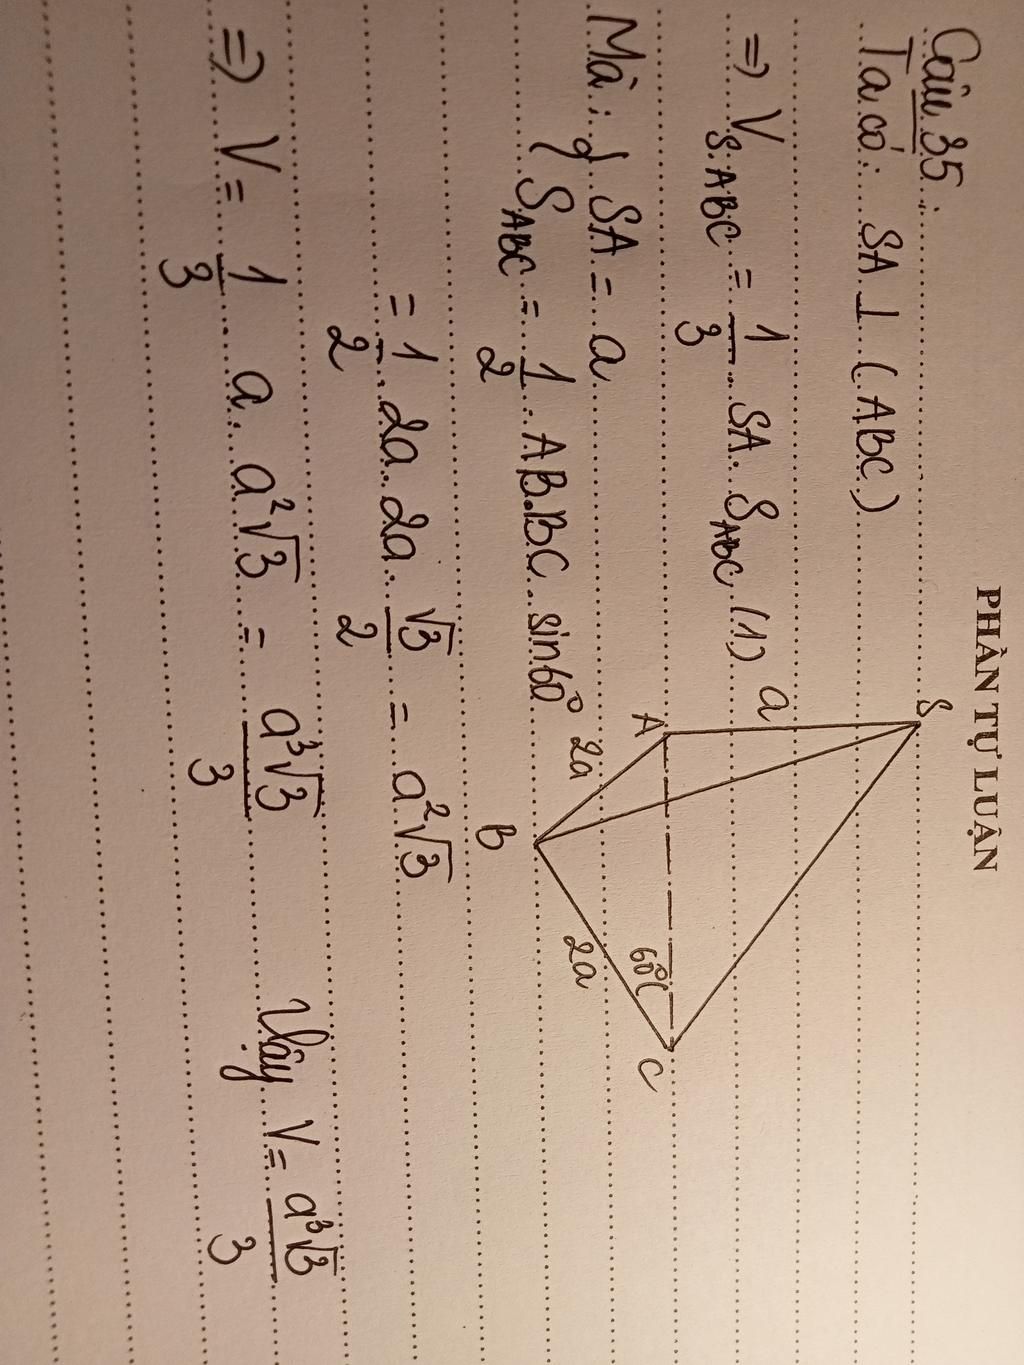 PHẦN TỰ LUẬN
Câu 35:
Ta có: SA ⊥ (ABC)
=> V_{S.ABC} = \frac{1}{3}. SA. S_{ABC} (1)
Mà: { SA = a
S_{ABC} = \frac{1}{2}. AB.BC. sin60°
= \frac{1}{2}. 2a. 2a. \frac{√3}{2} = a²√3
=> V = \frac{1}{3}. a. a²√3 = \frac{a³√3}{3}
Vậy V = \frac{a³√3}{3}
S
a
A
2a
B
2a
60°
C